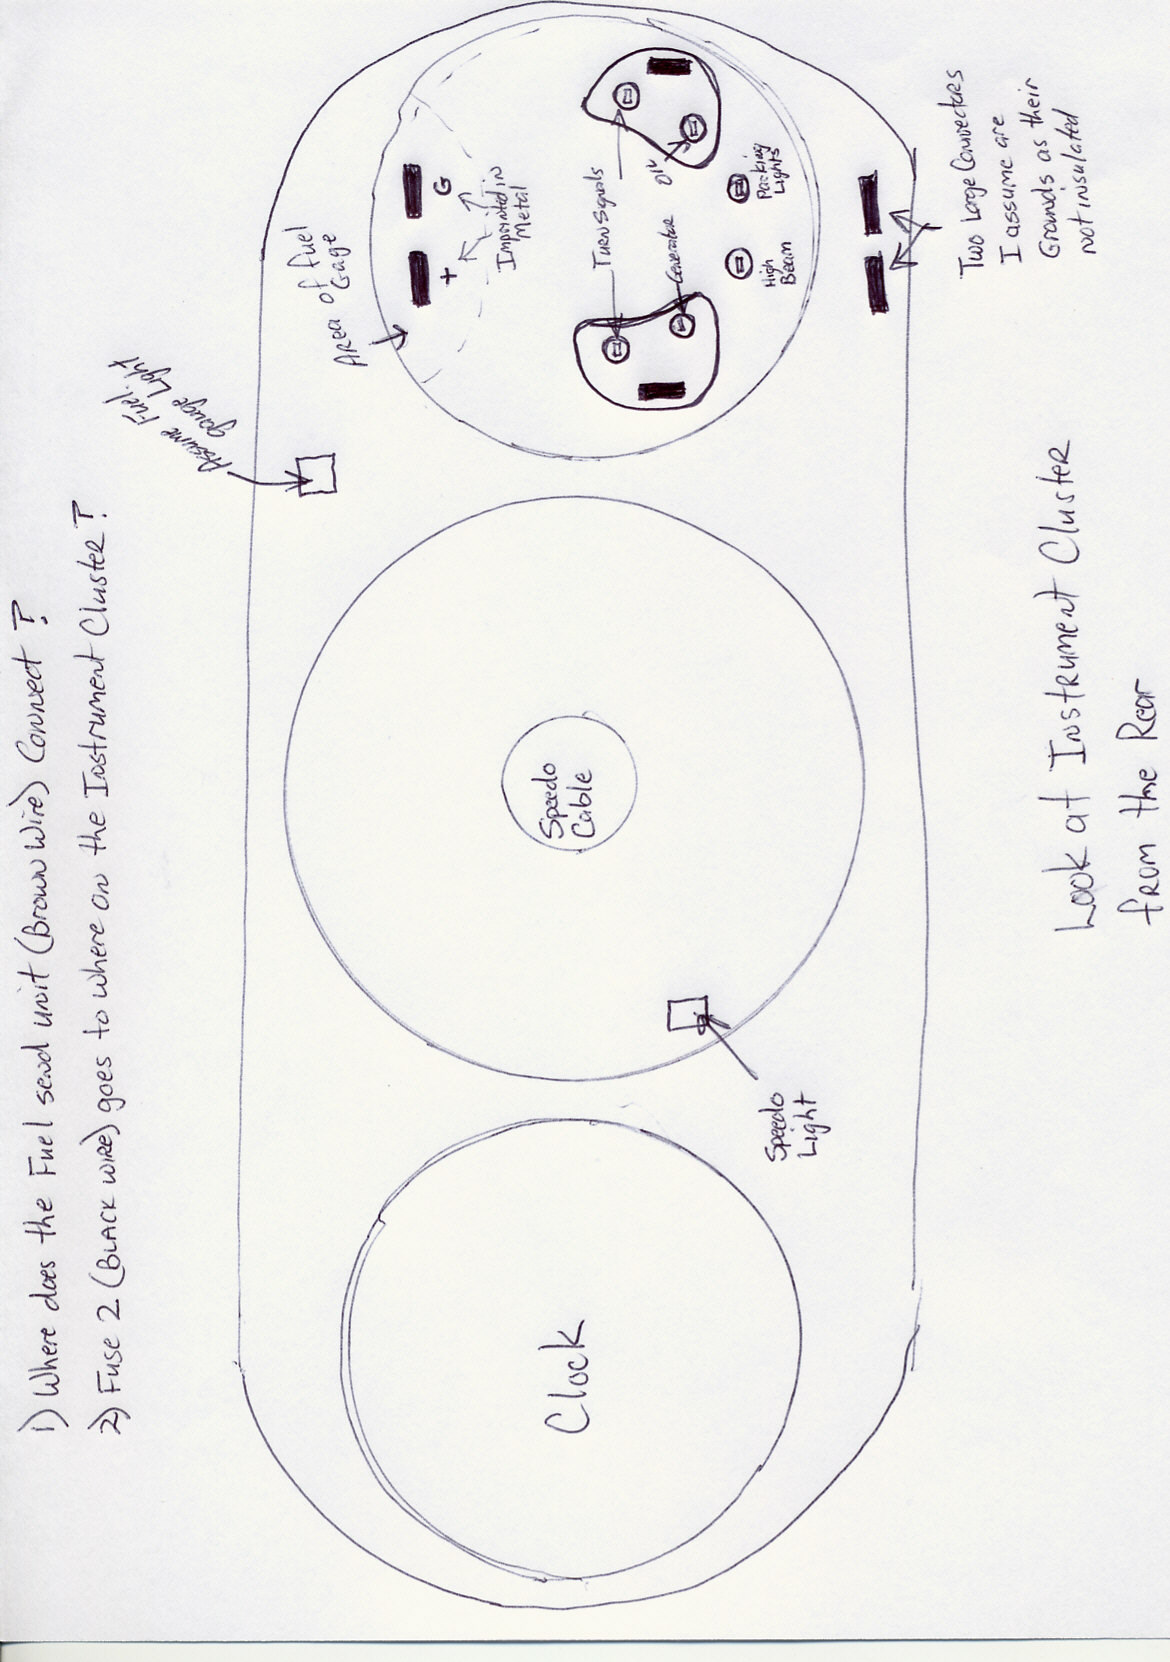 1) Where does the Fuel send unit (Brown Wire) Connect?
2) Fuse 2 (BLACK WIRE) goes to where on the Instrument Cluster?
Assume Fuel
gauge Light
Area of fuel
Gage
+
G
Imprinted in
Metal
Turn Signals
Oil
Generator
Parking
Lights
High
Beam
Two Large Connectors
I assume are
Grounds as their
not insulated
Speedo
Cable
Speedo
Light
Clock
Look at Instrument Cluster
from the Rear